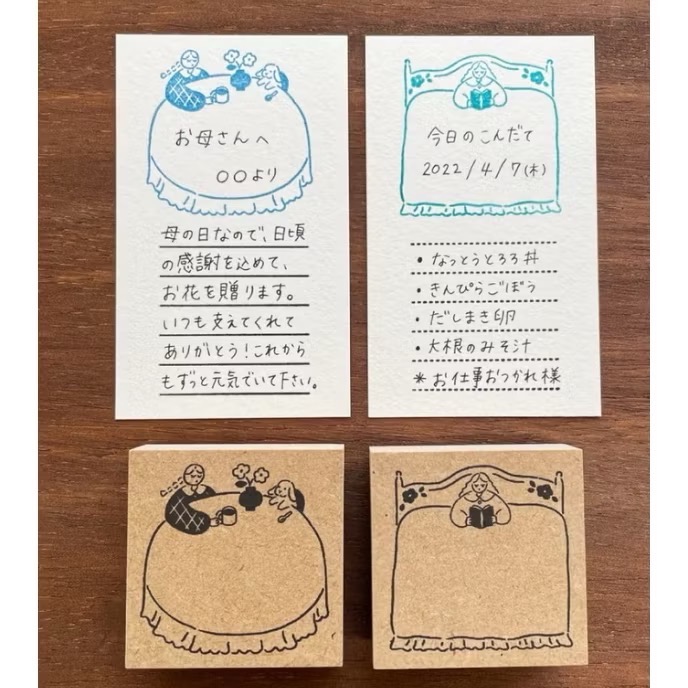 お母さんへ
〇〇より
母の日なので、日頃
の感謝を込めて、
お花を贈ります。
いつも支えてくれて
ありがとう！これから
もずっと元気でいて下さい。
今日のこんだて
2022/4/7(木)
・なっとうとろろ丼
・きんぴらごぼう
・だしまき卵
・大根のみそ汁
＊お仕事おつかれ様